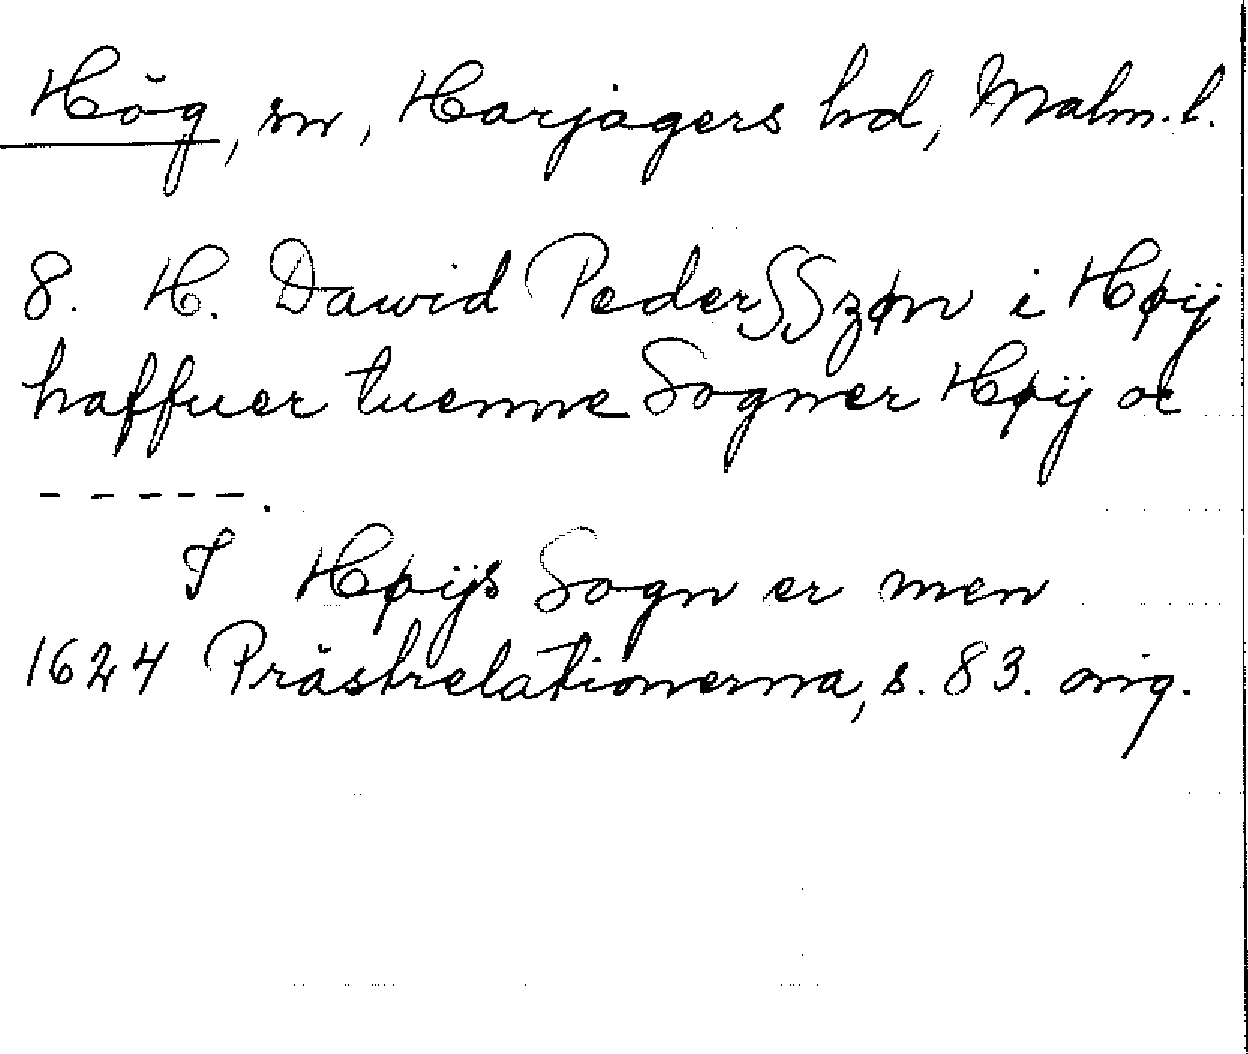 Hög, sn, Harjagers hd, Malm. l.
8. H. Dawid PederSSzøn i Høÿ
haffuer tuenne Sogner Høÿ oc
- - - - - .
I Høÿs Sogn er men
1624 Prästrelationerna, s. 83. orig.